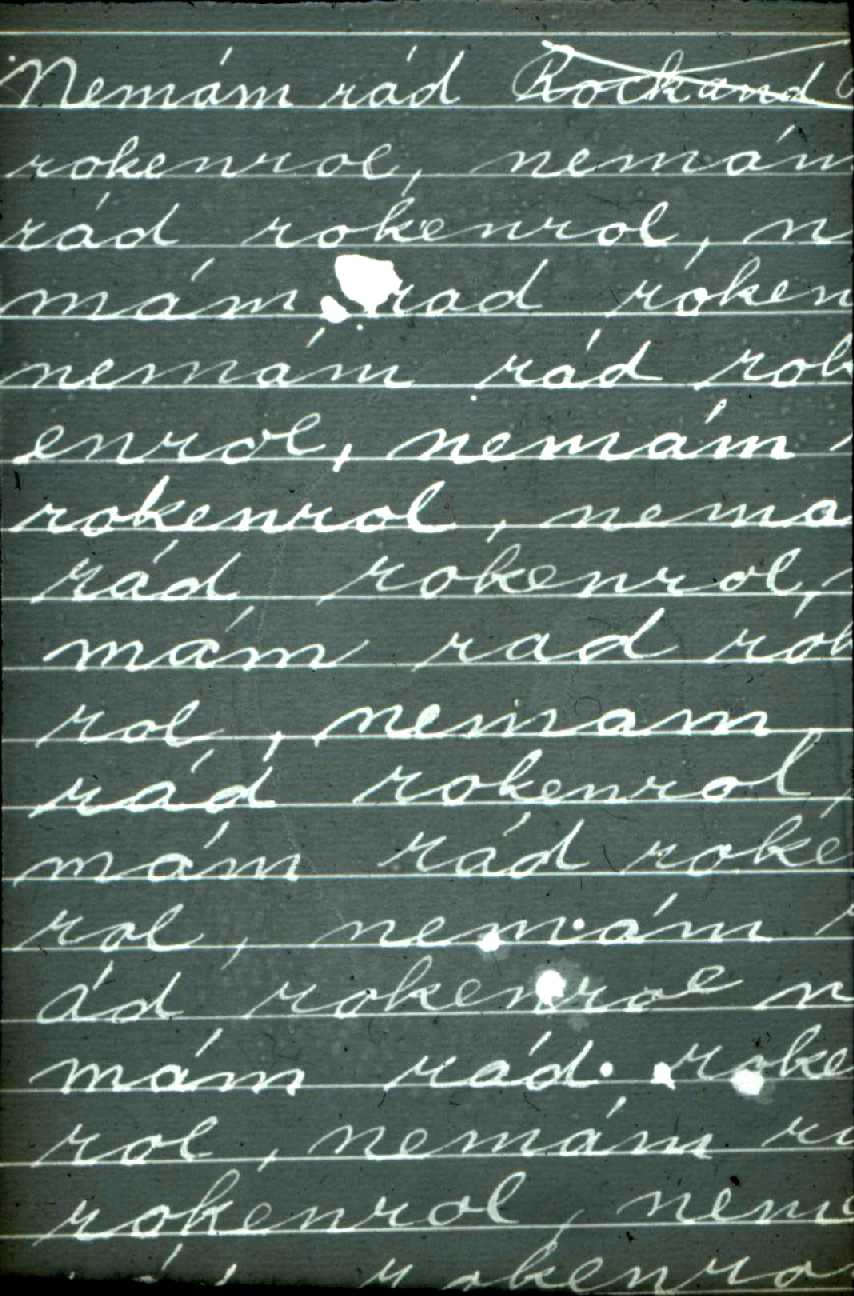 Nemám rád Rockand
rokenrol, nemám
rád rokenrol, n
mám rad roken
nemám rád rok
enrol, nemám
rokenrol, nema
rád rokenrol,
mám rad rok
rol, nemam
rád rokenrol,
mám rád roke
rol, nemám r
ád rokenrol n
mám rád roke
rol, nemám rá
rokenrol, nema
rokenrol